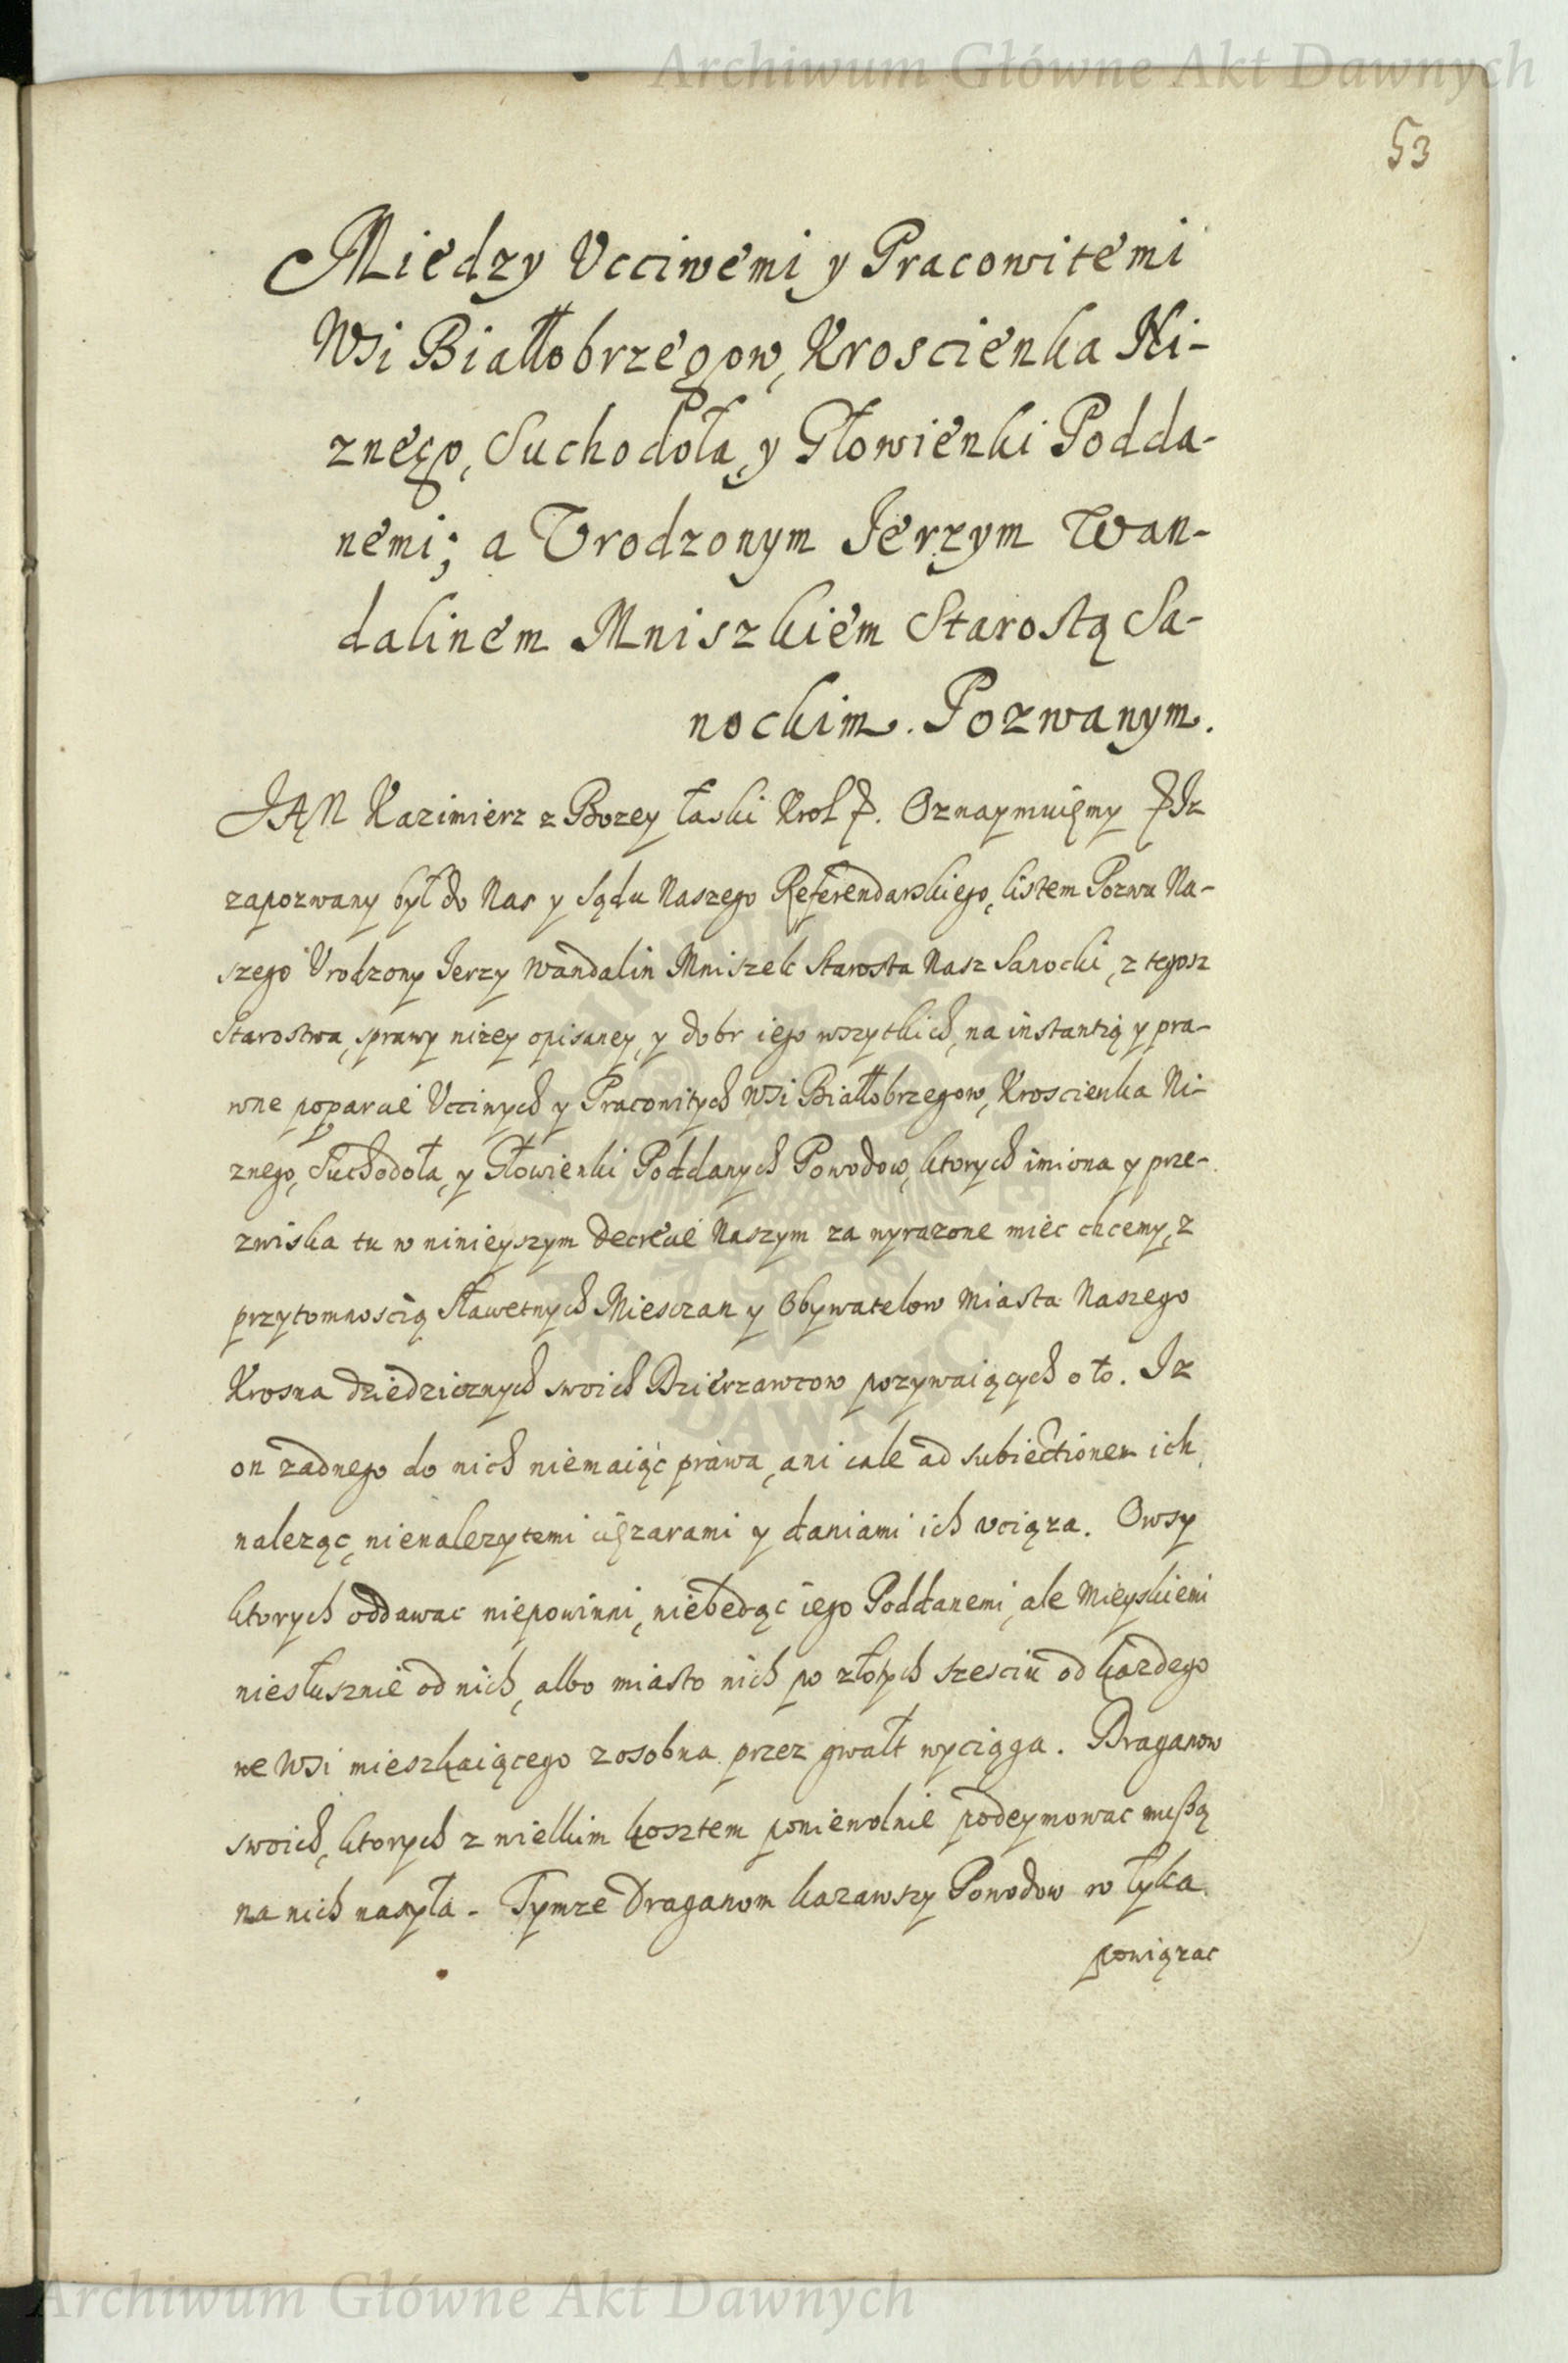 Archiwum Główne Akt Dawnych
53
Miedzy Ucciwemi y Pracowitemi
Wsi Białłobrzegow, Kroscienka Ni-
znego, Suchodoła, y Głowienki Podda-
nemi; a Vrodzonym Jerzym Wan-
dalinem Mniszkiem Starostą Sa-
nockim. Pozwanym.
JAN Kazimierz z Bozey łaski Krol. Oznaymuięmy Iz
zapozwany był do Nas y Sądu Naszego Referendarskiego, listem Pozwu Na-
szego Vrodzony Jerzy Wandalin Mniszek Starosta Nasz Sanocki, z tegosz
Starostwa, sprawy nizey opisaney, y dobr iego wszytkich, na instantią y pra-
wne poparcie Vcciwych y Pracowitych Wsi Białłobrzegow, Kroscienka Ni-
znego, Suchodoła, y Głowienki Poddanych Powodow, ktorych imiona y prze-
zwiska tu w ninieyszym decrecie Naszym za wyrazone miec chcemy, z
przytomnoscią Sławetnych Miesczan y Obywatelow Miasta Naszego
Krosna dziedzicznych swoich Dzierzawcow pozywaiących o to. Iz
on zadnego do nich niemaiąc prawa, ani cale ad subiectionem ich
naleząc, nienalezytemi cięzarami y daniami ich vciąza. Owsy
ktorych oddawac niepowinni, niebedąc iego Poddanemi, ale Mieyskiemi
niesłusznie od nich, albo miasto nich po złotych szesciu od kazdego
we Wsi mieszkaiącego zosobna przez gwałt wyciąga. Draganow
swoich, ktorych z wielkim kosztem poniewolnie podeymowac muszą
na nich nasyła. Tymze Draganom kazawszy Powodow w łyka
powiązac
Archiwum Główne Akt Dawnych